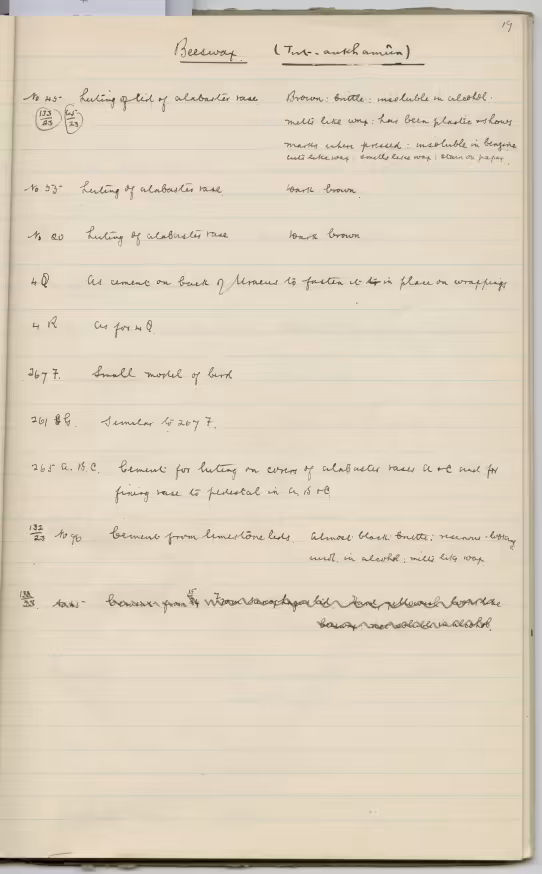 19
Beeswax (Tut-ankhamûn)
No 45 Luting of lid of alabaster vase Brown: brittle: insoluble in alcohol:
133/23 melts like wax: has been plastic & shows
marks when pressed: insoluble in benzine
cuts like wax: smells like wax: stain on paper.
No 33 Luting of alabaster vase Dark brown.
No 20 Luting of alabaster vase Dark brown
4 Q As cement on back of Uraeus to fasten it in place on wrappings
4 R As for 4 Q.
267 F. Small model of bird
261 G. Similar to 267 F.
265 A. B. C. Cement for luting on covers of alabaster vases A & C and for
fixing vase to pedestal in A B & C
132/23 No 96 Cement from limestone lids. Almost black brittle: resinous-looking
insol. in alcohol: melts like wax
133/23